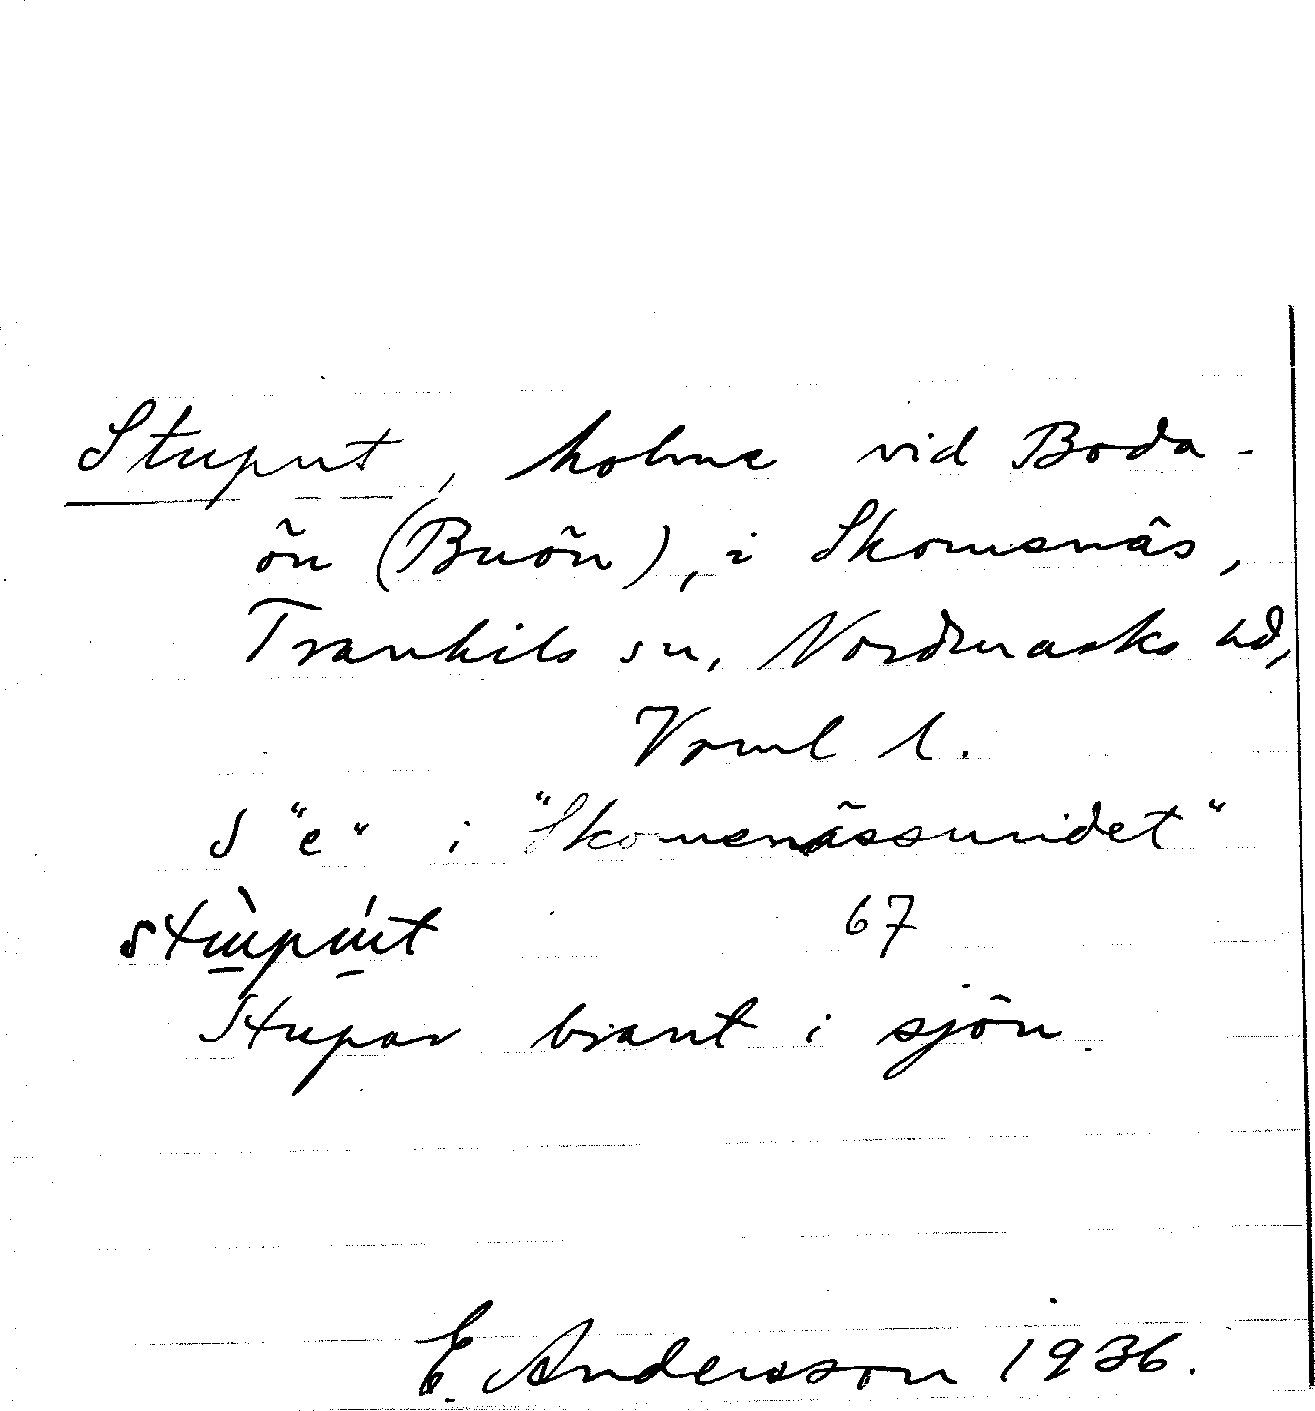 Stuput, holme vid Boda-
ön (Buön), i Skomenäs,
Trankils sn, Nordmarks hd,
Vrml l.
S "e" i "Skomenässundet"
stùpút 67
Stupar brant i sjön.
E. Andersson 1936.